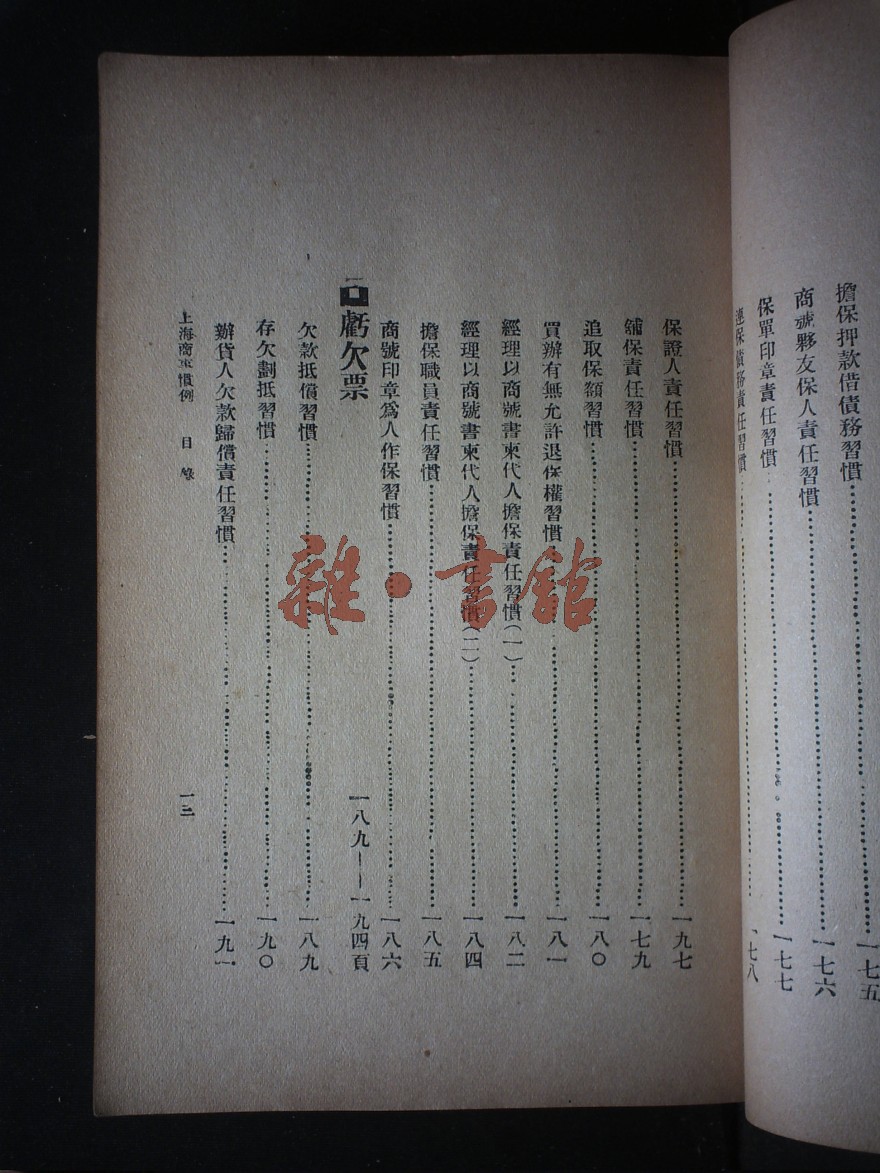 擔保押款借債務習慣……一七五
商號夥友保人責任習慣……一七六
保單印章責任習慣……一七七
連保債務責任習慣……一七八
保證人責任習慣……一九七
鋪保責任習慣……一七九
追取保額習慣……一八〇
買辦有無允許退保權習慣……一八一
經理以商號書柬代人擔保責任習慣(一)……一八二
經理以商號書柬代人擔保責任習慣(二)……一八四
擔保職員責任習慣……一八五
商號印章爲人作保習慣……一八六
虧欠票 一八九——一九四頁
欠款抵償習慣……一八九
存欠劃抵習慣……一九〇
辦貨人欠款歸償責任習慣……一九一
上海商事慣例 目錄 一三
雜·書館